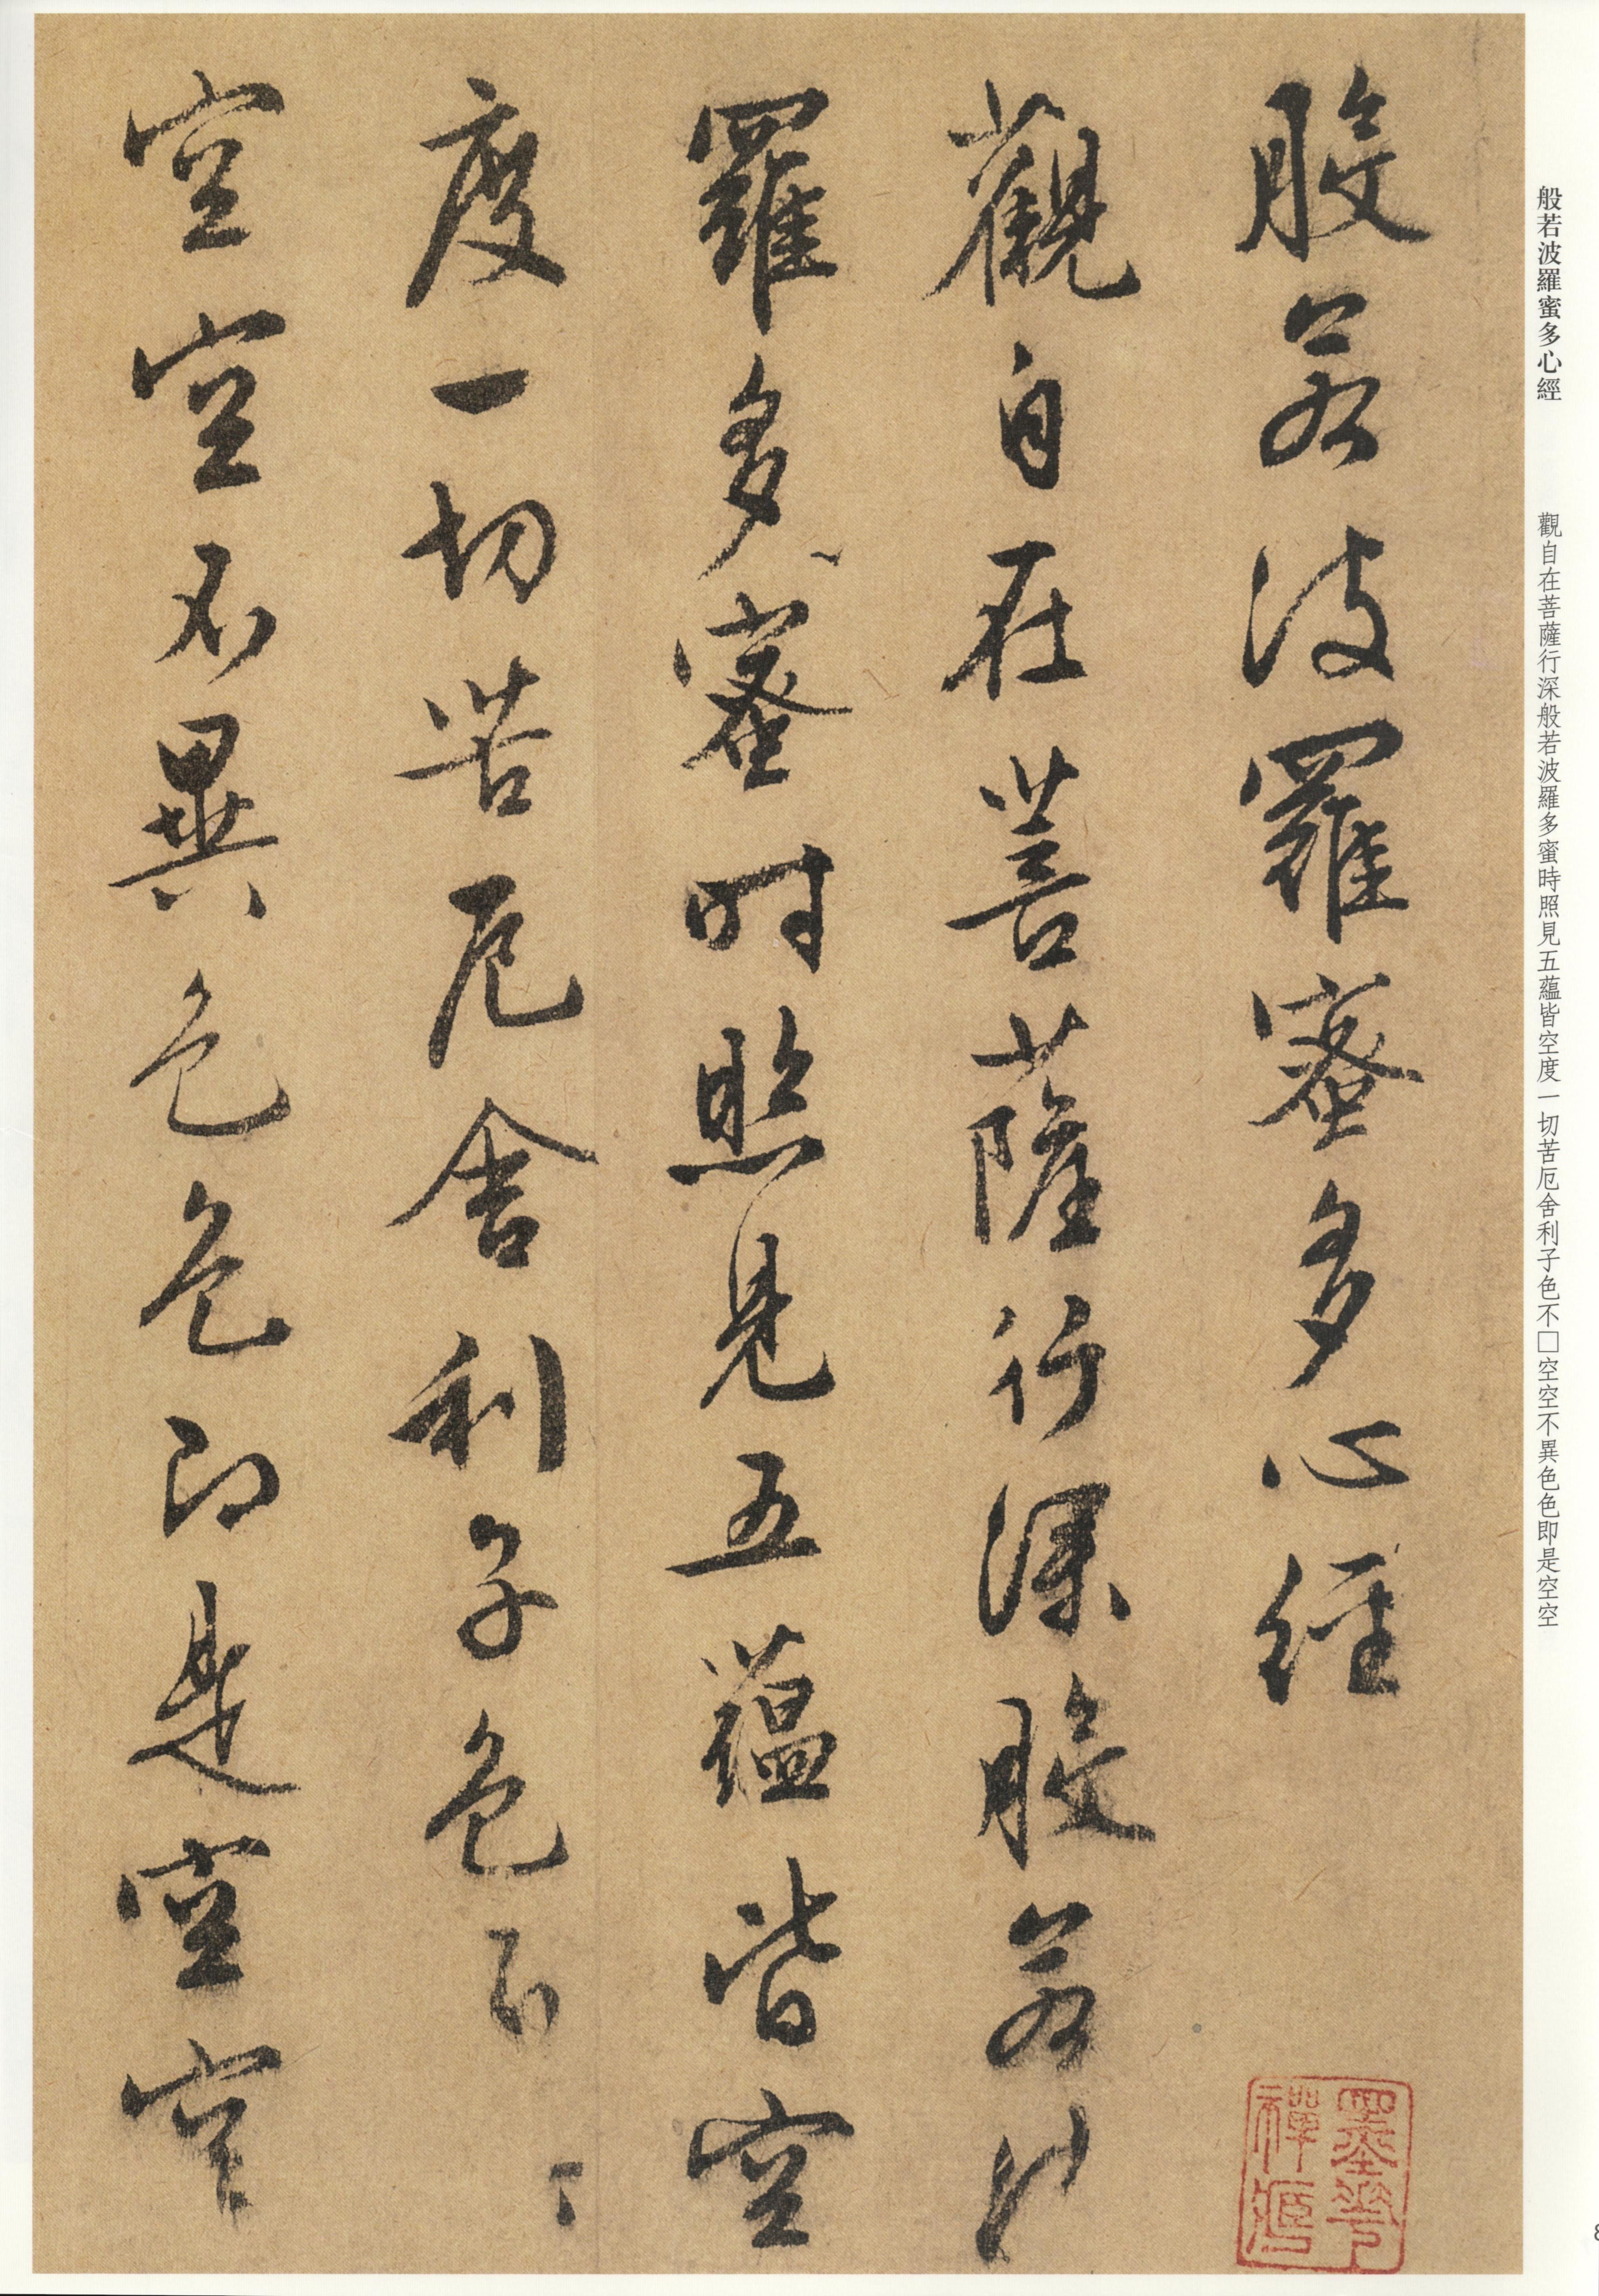 般若波羅蜜多心經
觀自在菩薩行深般若波
羅多蜜時照見五蘊皆空
度一切苦厄舍利子色不
空空不異色色即是空空
墨華
禪
般若波羅蜜多心經
觀自在菩薩行深般若波羅多蜜時照見五蘊皆空度一切苦厄舍利子色不□空空不異色色即是空空
8